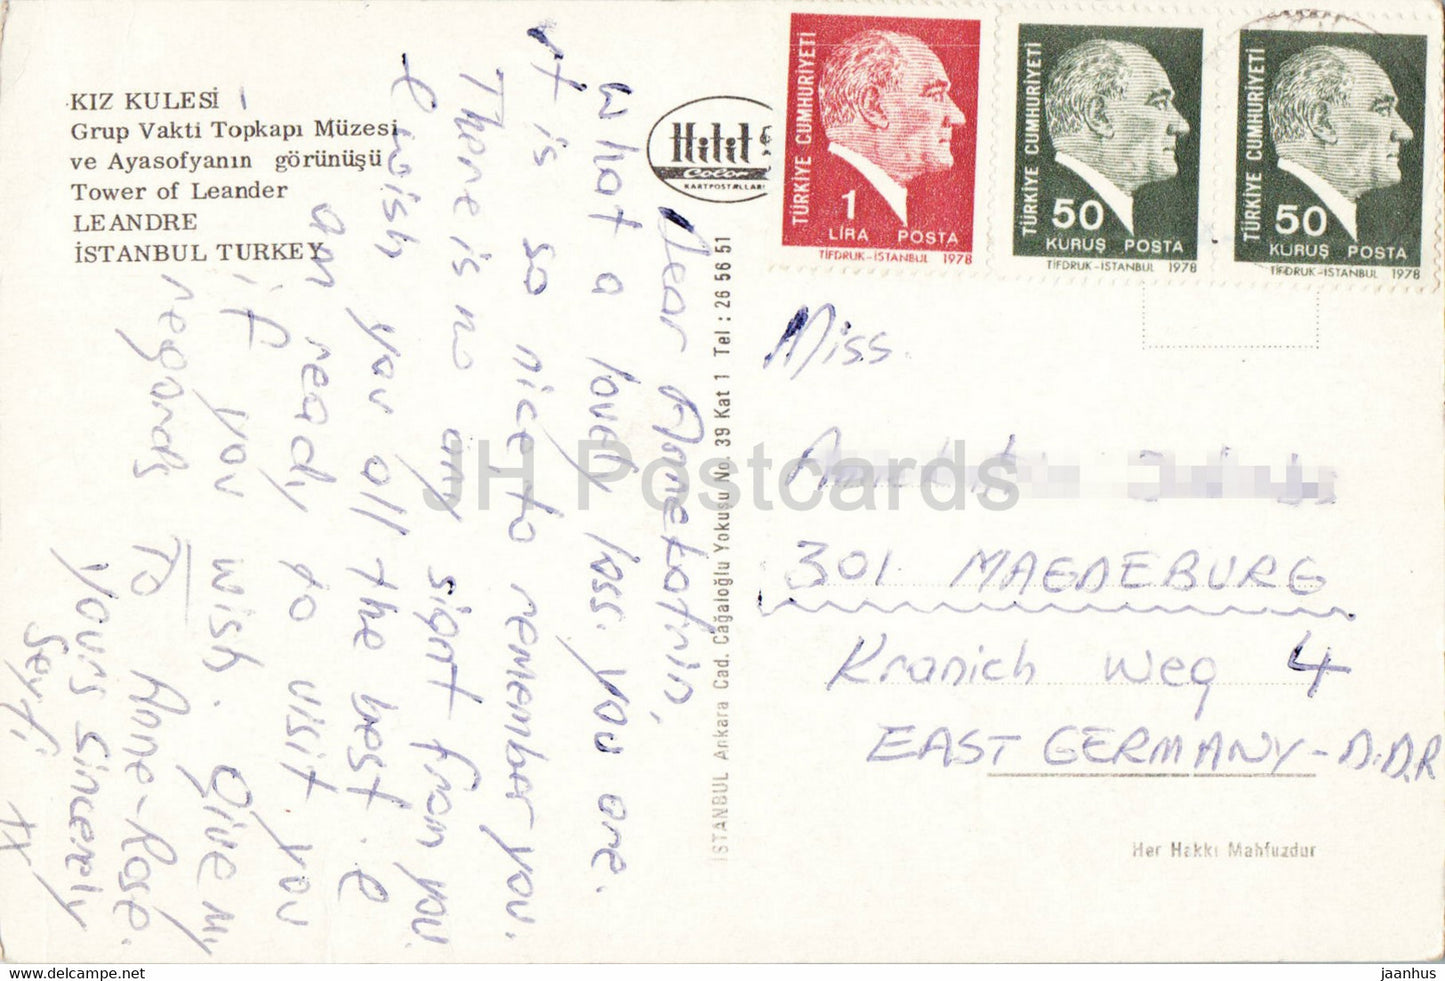 KIZ KULESİ
Grup Vakti Topkapı Müzesi
ve Ayasofyanın görünüşü
Tower of Leander
LEANDRE
İSTANBUL TURKEY
Hitit
Color
KARTPOSTALLARI
TÜRKİYE CUMHURİYETİ
1
LİRA POSTA
TİFDRUK-İSTANBUL 1978
TÜRKİYE CUMHURİYETİ
50
KURUŞ POSTA
TİFDRUK-İSTANBUL 1978
TÜRKİYE CUMHURİYETİ
50
KURUŞ POSTA
TİFDRUK-İSTANBUL 1978
Dear Annetatrin,
What a lovely lass you are.
it is so nice to remember you.
There is no any signt from you.
I wish you all the best. I
am ready to visit you
if you wish. Give my
regards To Anne-Rose.
Yours Sincerely
Seyfi xx
İSTANBUL Ankara Cad. Cağaloğlu Yokuşu No. 39 Kat 1 Tel : 26 56 51
Miss.
301 MAGDEBURG
Kranich Weg 4
EAST GERMANY - D.D.R
Her Hakkı Mahfuzdur
JH Postcards
www.delcampe.net
jaanhus